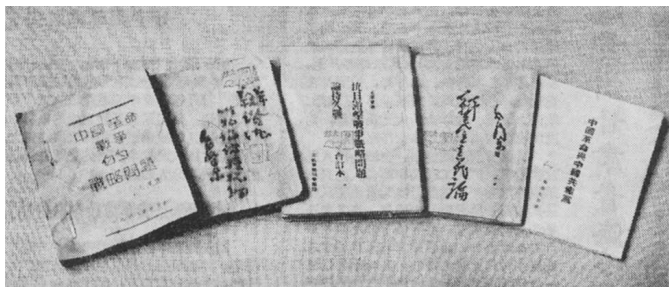 中國革命
戰爭
的
戰略問題
辯證法
唯物論
毛澤東
抗日游擊戰爭戰略問題
論持久戰
合訂本
毛澤東
新民主主義論
中國革命與中國共產黨